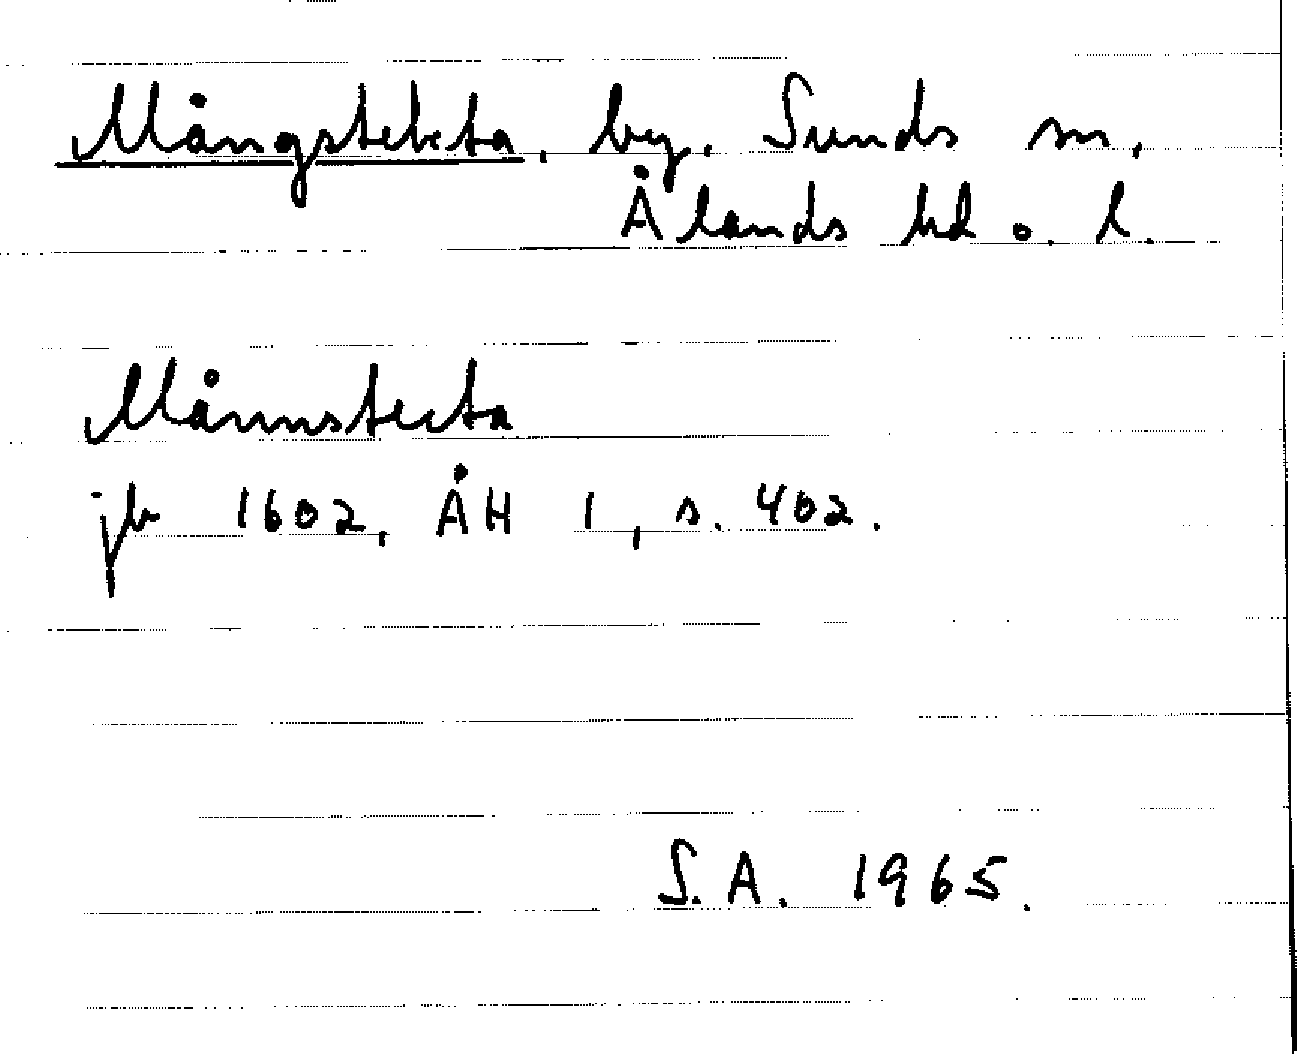 Mångstekta, by. Sunds sn,
Ålands hd o. l.
Månnstecta
jb 1602, ÅH 1, s. 402.
S.A. 1965.